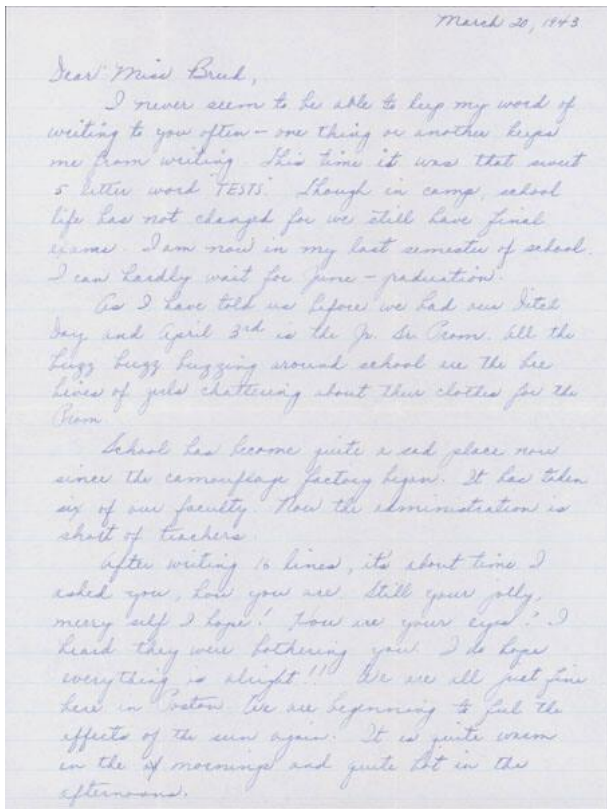 March 20, 1943
Dear Miss Breed,
I never seem to be able to keep my word of
writing to you often - one thing or another keeps
me from writing. This time it was that sweet
5 letter word TESTS. Though in camp, school
life has not changed for we still have final
exams. I am now in my last semester of school.
I can hardly wait for June - graduation.
As I have told us before we had our Ditch
Day and April 3rd is the Jr. Sr. Prom. All the
buzz buzz buzzing around school are the bee
hives of girls chattering about their clothes for the
Prom.
School has become quite a sad place now
since the camouflage factory began. It has taken
six of our faculty. Now the administration is
short of teachers.
After writing 16 lines, it's about time I
asked you, how you are. Still your jolly,
merry self I hope! How are your eyes? I
heard they were bothering you. I do hope
everything is alright!!! We are all just fine
here in Poston. We are beginning to feel the
effects of the sun again. It is quite warm
in the mornings and quite hot in the
afternoons.